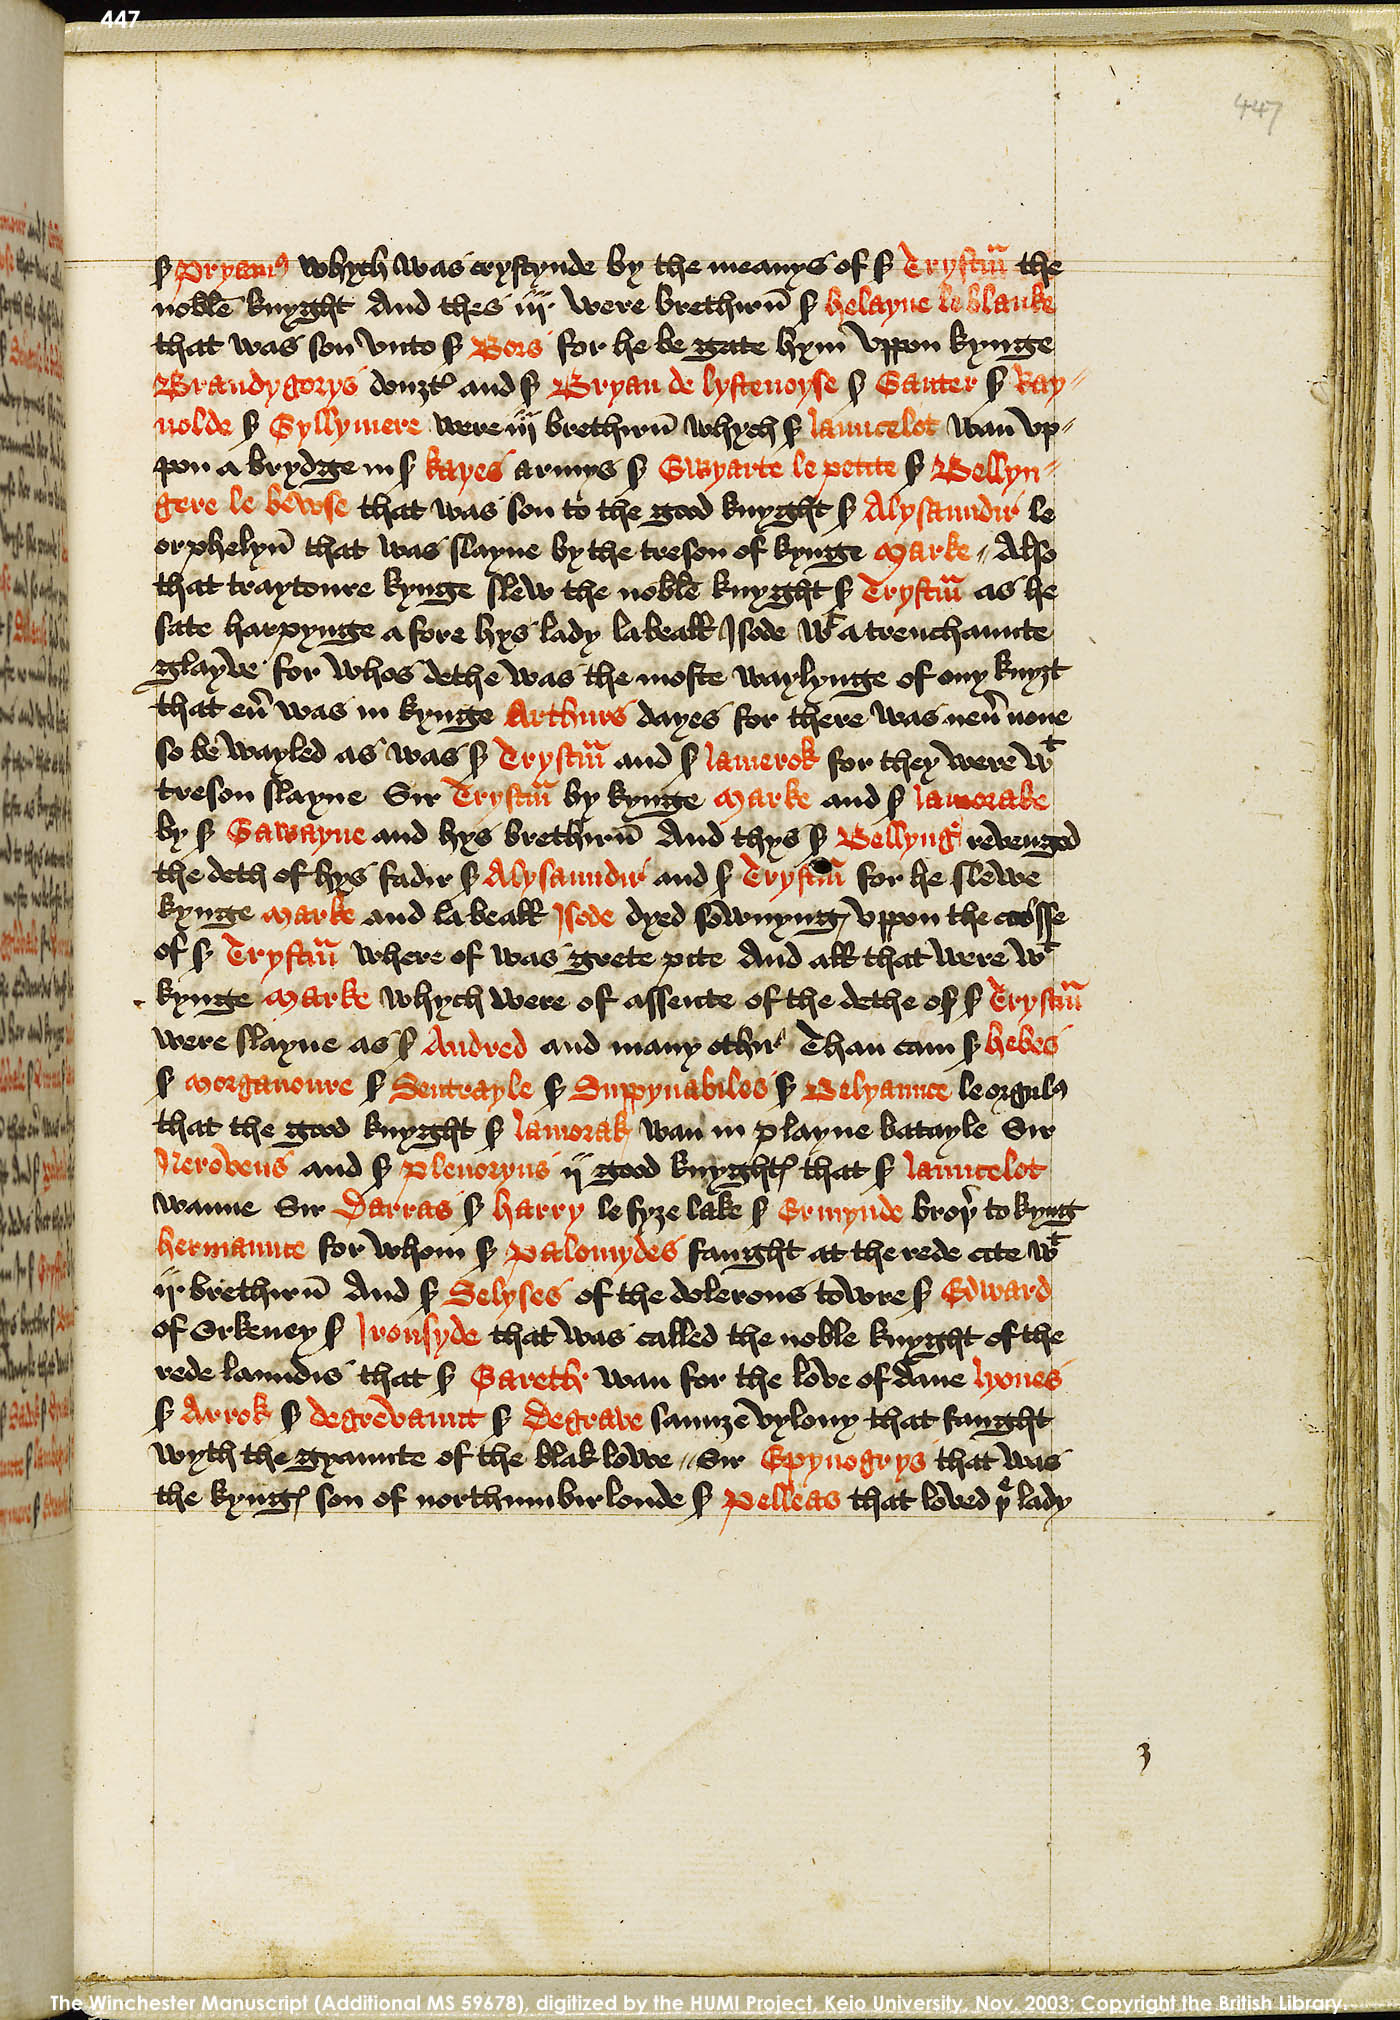 447
447
S Pryamꝰ whych was crystynde by the meanys of S Trystrm̃ the
noble knyght And thes iij were brethirn̄ S helayne le blanke
that was son vnto S Bors for he be gate hym vppon kynge
Brandygorys douȝtꝭ and S Bryan de lystenoyse S Gauter S Ray〃
nolde S Gyllymere were iij brethirn̄ whych S launcelot wan vp〃
pon a brydge in S kayes armys S Gwyarte le petite S Bellyn〃
gere le bewse that was son to the good knyght S Alysaundir le
orphelyn̄ that was slayne by the treson of kynge Marke〃 Also
that traytoure kynge slew the noble knyght S Trystrm̃ as he
sate harpynge a fore hys lady la beall Isode wᵗ a trenchaunte
glayve for whos dethe was the moste waylynge of ony knyȝt
that eũ was in kynge Arthurs dayes for there was neũ none
so be wayled as was S Trystrm̃ and S lamerok for they were wᵗ
treson slayne Sir Trystrm̃ by kynge Marke and S lamorake
by S Gawayne and hys brethirn̄ And thys S Bellyngꝰ revenged
the deth of hys fadir S Alysaundir and S Trystrm̃ for he slewe
kynge Marke and la beall Isode dyed sownyngꝭ vppon the crosse
of S Trystrm̃ where of was grete pite And all that were wᵗ
kynge Marke whych were of assente of the dethe of S Trystrm̃
were slayne as S Andred and many othir Than cam S hebes
S Morganoure S Sentrayle S Suppynabiles S Belyaunce le orgulꝰ
that the good knyght S lamorak wan in playne batayle Sir
Neroveus and S plenoryus ij good knyghtꝭ that S launcelot
wanne Sir Darras S harry le fyze lake S Ermynde broþ to kyng
hermaunce for whom S palomydes faught at the rede cite wᵗ
ij brethirn̄ And S Selyses of the dolerous towre S Edward
of Orkeney S Ironsyde that was called the noble knyght of the
rede laundis that S Gareth wan for the love of dame lyones
S Arrok S degrevaunt S Degrave saunze vylony that faught
wyth the gyaunte of the blak lowe〃 Sir Epynogrys that was
the kyngꝭ son of northumbirlonde S pelleas that loved þe lady
3
The Winchester Manuscript (Additional MS 59678), digitized by the HUMI Project, Keio University, Nov. 2003; Copyright the British Library.